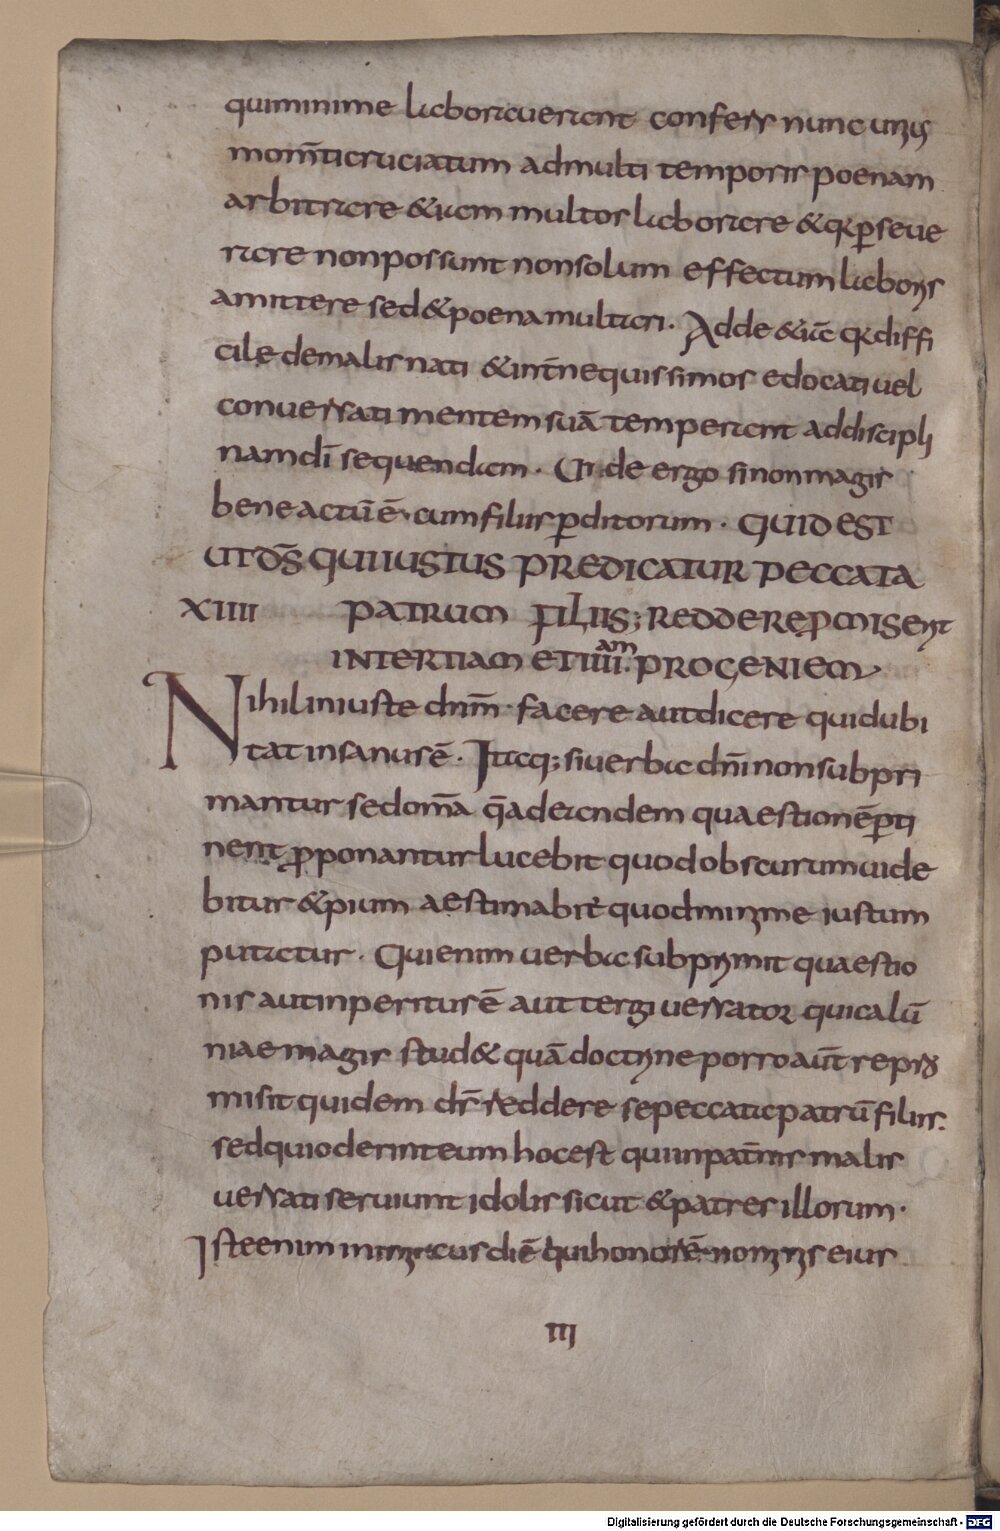 quiminime laborauerant confers nunc unis
mom̄ti cruciatum admulti temporis poenam
arbitrare &iam multos laborare &qa ꝑseue
rare nonpossunt nonsolum effectum laboris
amittere sed&poenamultari. Adde &iāc qa diffi
cile demalis nati &int̄ nequissimos edocati uel
conuersati mentem suā temperant addiscipli
namdī sequendam. Uide ergo sinonmagis
bene actū ē. cumfiliis ꝑditorum. QUID EST
UT DS̄ QUI IUSTUS PREDICATUR PECCATA
XIIII PATRUM FILIIS; REDDERE PROMISERIT
IN TERTIAM ET IIII.am PROGENIEM
Nihil iniuste dnm̄. facere autdicere qui dubi
tat insanus ē. Itaq; siuerba dnī nonsubpri
mantur sedomā q̄ adeandem quaestionē ꝑti
nent ꝓponantur lucebit quod obscurum uide
bitur &pium aestimabit quodminime iustum
putatur. Quienim uerba subprimit quaestio
nis aut inperitus ē aut tergi uersator qui calū
niae magis stud& quā doctrine porro aūt repro
misit quidem ds̄ reddere sepeccata patrū filiis.
sedquioderinteum hocest quiinpat̄nis malis
uersati seruiunt idolis sicut &patres illorum.
Iste enim inimicus dīē qui honoris ē nominis eius
III
Digitalisierung gefördert durch die Deutsche Forschungsgemeinschaft - DFG